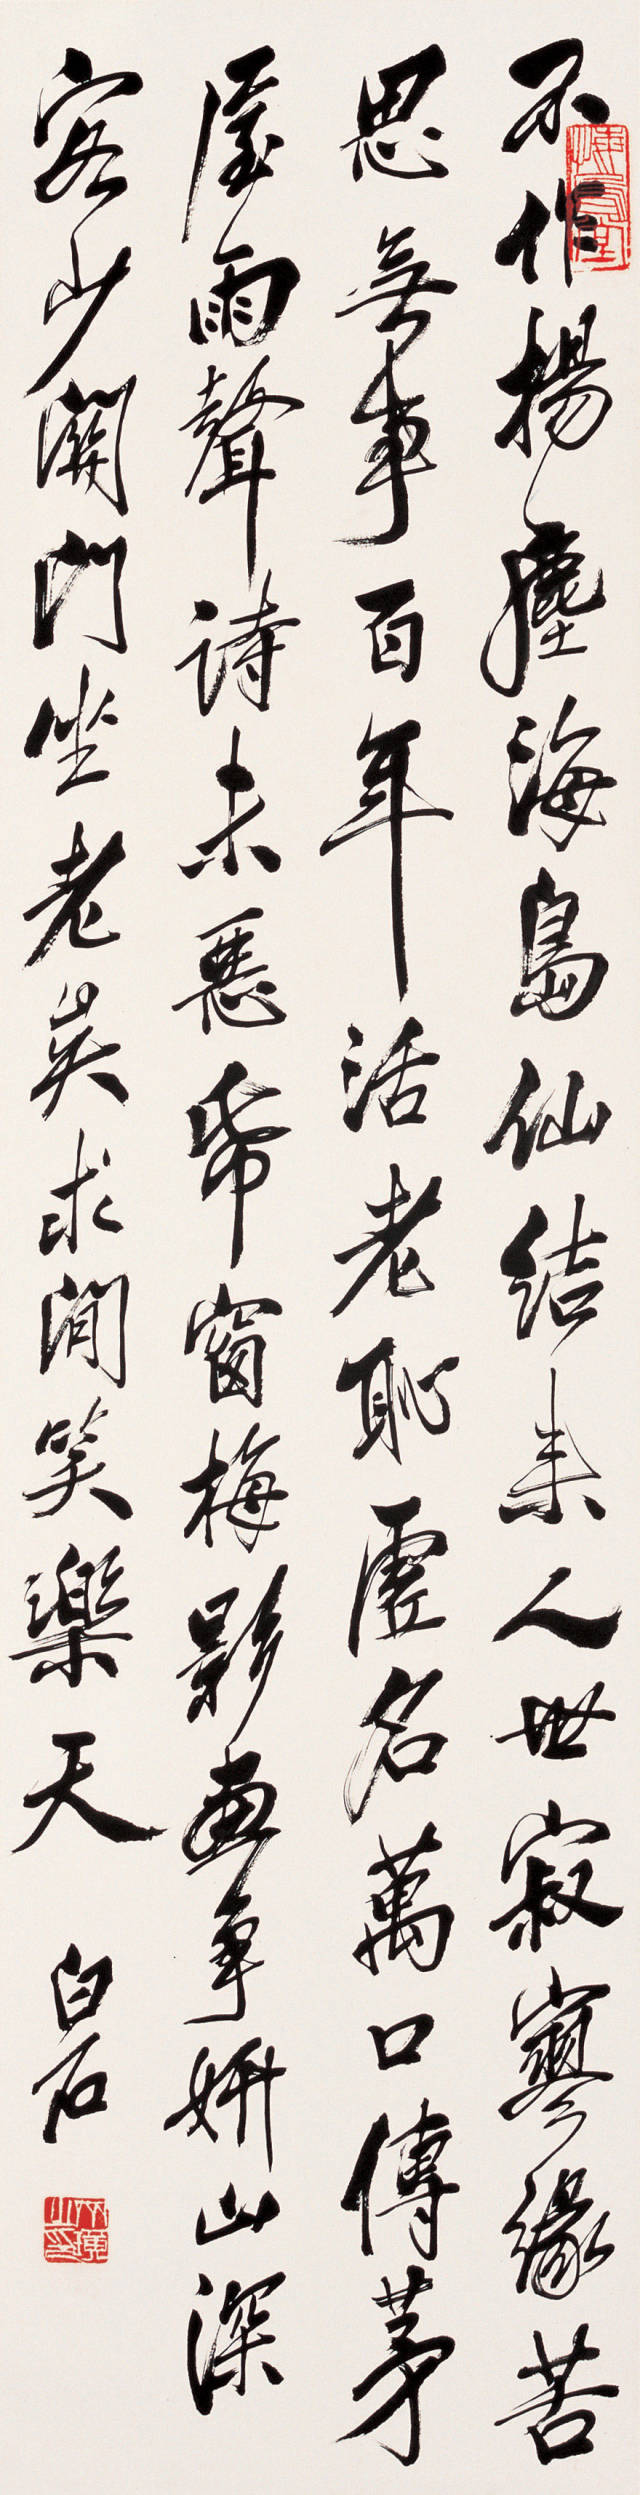 不作揚塵海島仙結來人世寂寥緣苦
思無事百年活老恥虛名萬口傳茅
屋雨聲詩未惡紙窗梅影畫爭妍山深
客少關門坐老矣求閒笑樂天
白石